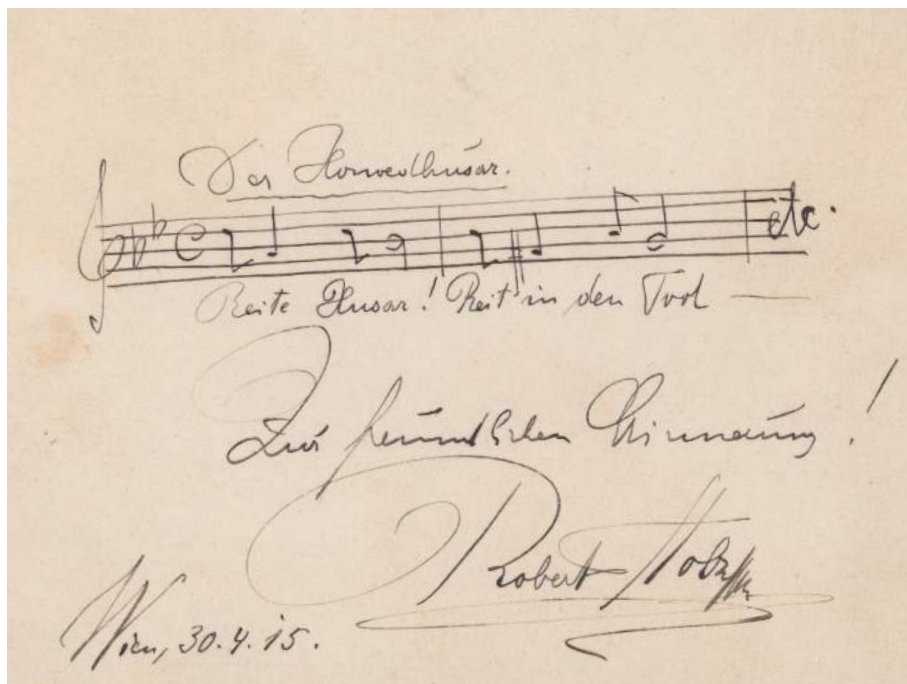 Der Honvedhusar.
etc.
Reite Husar! Reit in den Tod
Zur freundlichen Erinnerung!
Robert Stolz
Wien, 30.4.15.